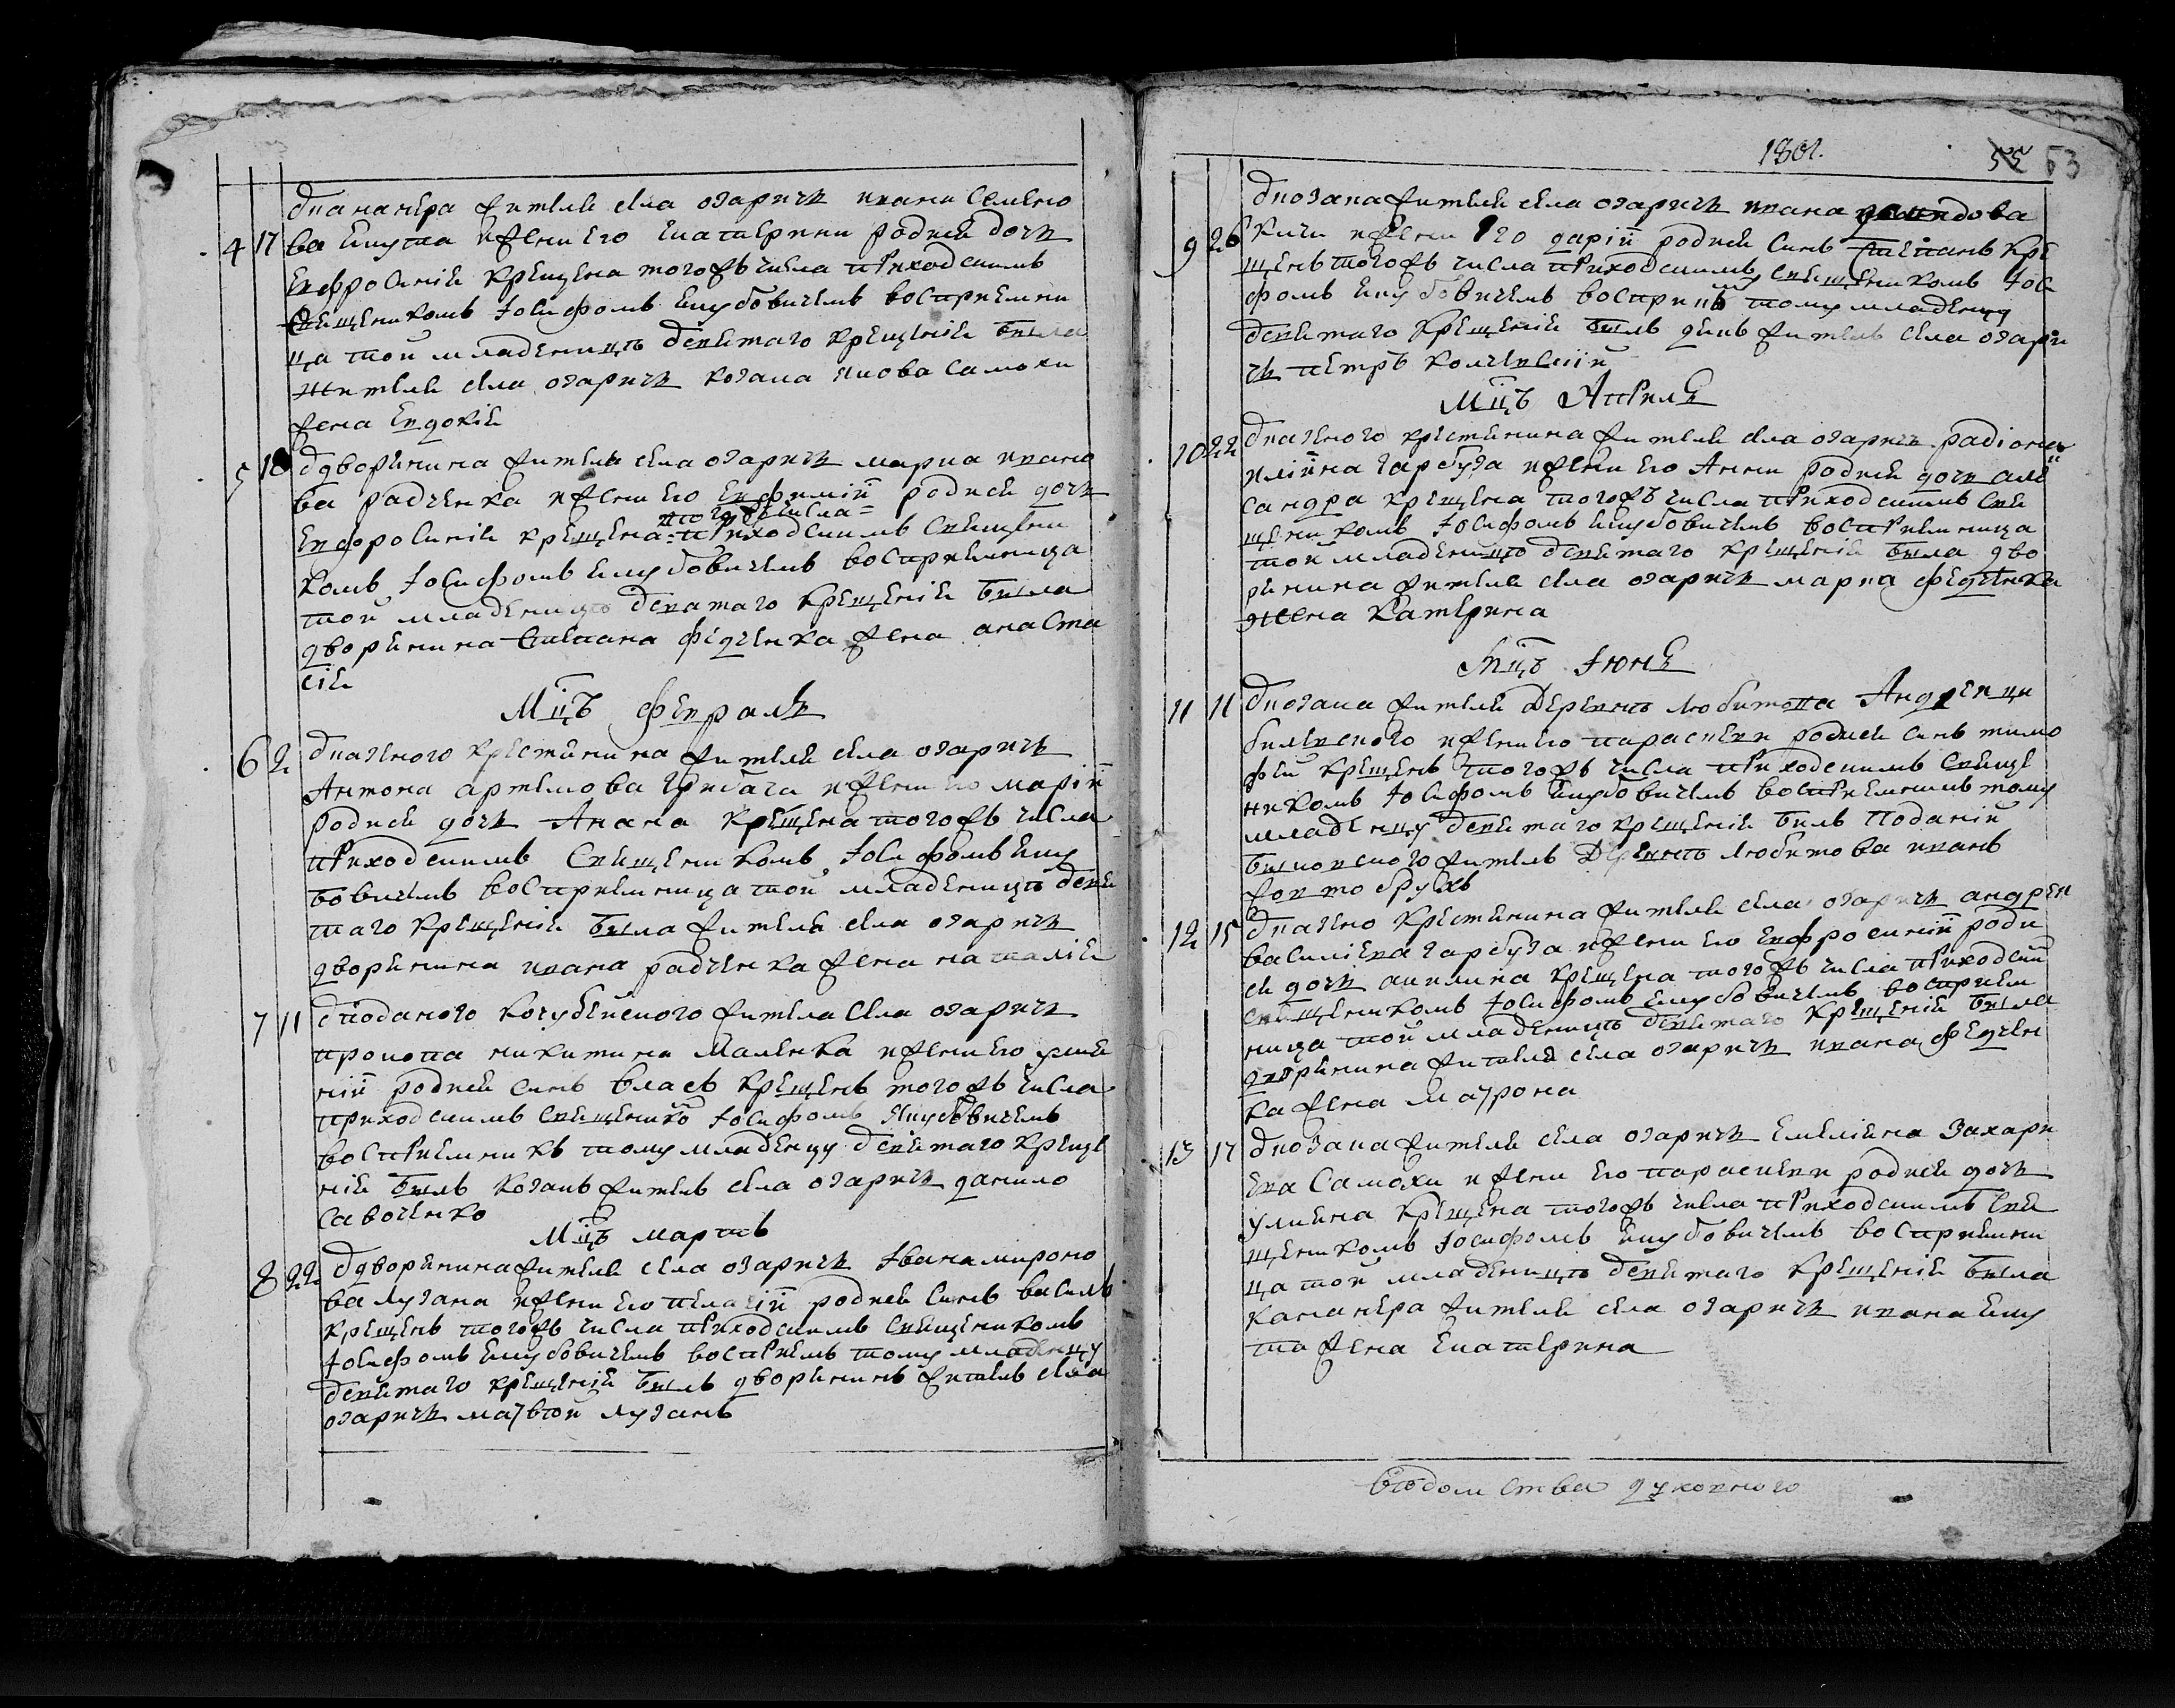 4 17 У канонера жителя села озаричъ ивана Семено
ва Якута ижены его Екатерины родися дочъ
Евфросинія крещена тогожъ числа приходскимъ
священикомъ Іосифомъ Якубовичемъ восприемни
ца той младеницѣ святаго крещенія была
жителя села озаричъ козака якова самохи
жена Евдокія
5 18 У дворянина жителя села озаричъ марка ивано
ва радченка ижены его Евфиміи родися дочъ
тогожъ числа
Евфросинія крещена приходскимъ священи
комъ Іосифомъ Якубовичемъ восприемница
той младеницѣ святаго крещенія была
дворянина Степана федченка жена анаста
сія
Мцъ февраль
6 2 У казеного крестянина жителя села озаричъ
Антона артемова ижены его маріи
родися дочъ Анана крещена тогожъ числа
приходскимъ Священикомъ Іосифомъ Яку
бовичемъ восприемница той младеницѣ свя
таго крещенія была жителя села озаричъ
дворянина ивана радченка жена наталія
7 11 У поданого кочубейского жителя села озаричъ
прокопа никитина Маленка ижены его
родися синъ власъ крещенъ тогожъ числа
приходскимъ священико Іосифомъ Якубовичемъ
восприемникъ тому младенцу святаго креще
нія былъ козакъ житель села озаричъ данило
савоченко
Мцъ мартъ
8 22 У дворянина жителя села озаричъ Івана мироно
ва лузана ижены его пелагіи родися синъ василь
крещенъ тогожъ числа приходскимъ священикомъ
Іосифомъ Якубовичемъ восприемъ тому младенцу
святаго крещенія былъ дворянинъ житель села
озаричъ матвей лузанъ
1801.
55 53
У козака жителя села озаричъ ивана
9 26 ижены его даріи родися синъ Степанъ кре
щенъ тогожъ числа приходскимъ священикомъ Іоси
фомъ Якубовичемъ восприем тому младенцу
святаго крещенія былъ житель села озари
чъ петръ
Мцъ Априль
10 22 У казеного крестянина жителя села озаричъ радіона
иліина гарбуза ижены его Анны родися дочъ алек
сандра крещена тогожъ числа приходскимъ свя
щеникомъ Іосифомъ Якубовичемъ восприемница
той младеницѣ святаго крещенія была дво
рянина жителя села озаричъ марка федченка
жена катерина
Мцъ Іюнь
11 11 У козака жителя Деревнѣ Любитова Андрея
ижены его параскеви родися синъ тимо
фей крещенъ тогожъ числа приходскимъ свяще
никомъ Іосифомъ Якубовичемъ восприемникъ тому
младенцу святаго крещенія билъ Поданій
житель Деревнѣ Любитова иванъ
жовтобрухъ
12 15 У казено крестянина жителя села озаричъ андрея
василіева гарбуза ижены его Евфросиніи роди
ся дочъ акилина крещена тогожъ числа приходский
священикомъ Іосифомъ Якубовичемъ восприем
ница той младеницѣ святаго крещенія была
дворянина жителя села озаричъ ивана федчен
ка жена матрона
13 17 У козака жителя села озаричъ Емеліяна Захари
ева Самохи ижены его параскеви родися дочъ
улияна крещена тогожъ числа приходскимъ свя
щеникомъ Іосифомъ Якубовичемъ восприемни
ца той младеницѣ святаго крещенія была
канонера жителя села озаричъ ивана Яку
та жена Екатерина
вѣдомства духовного